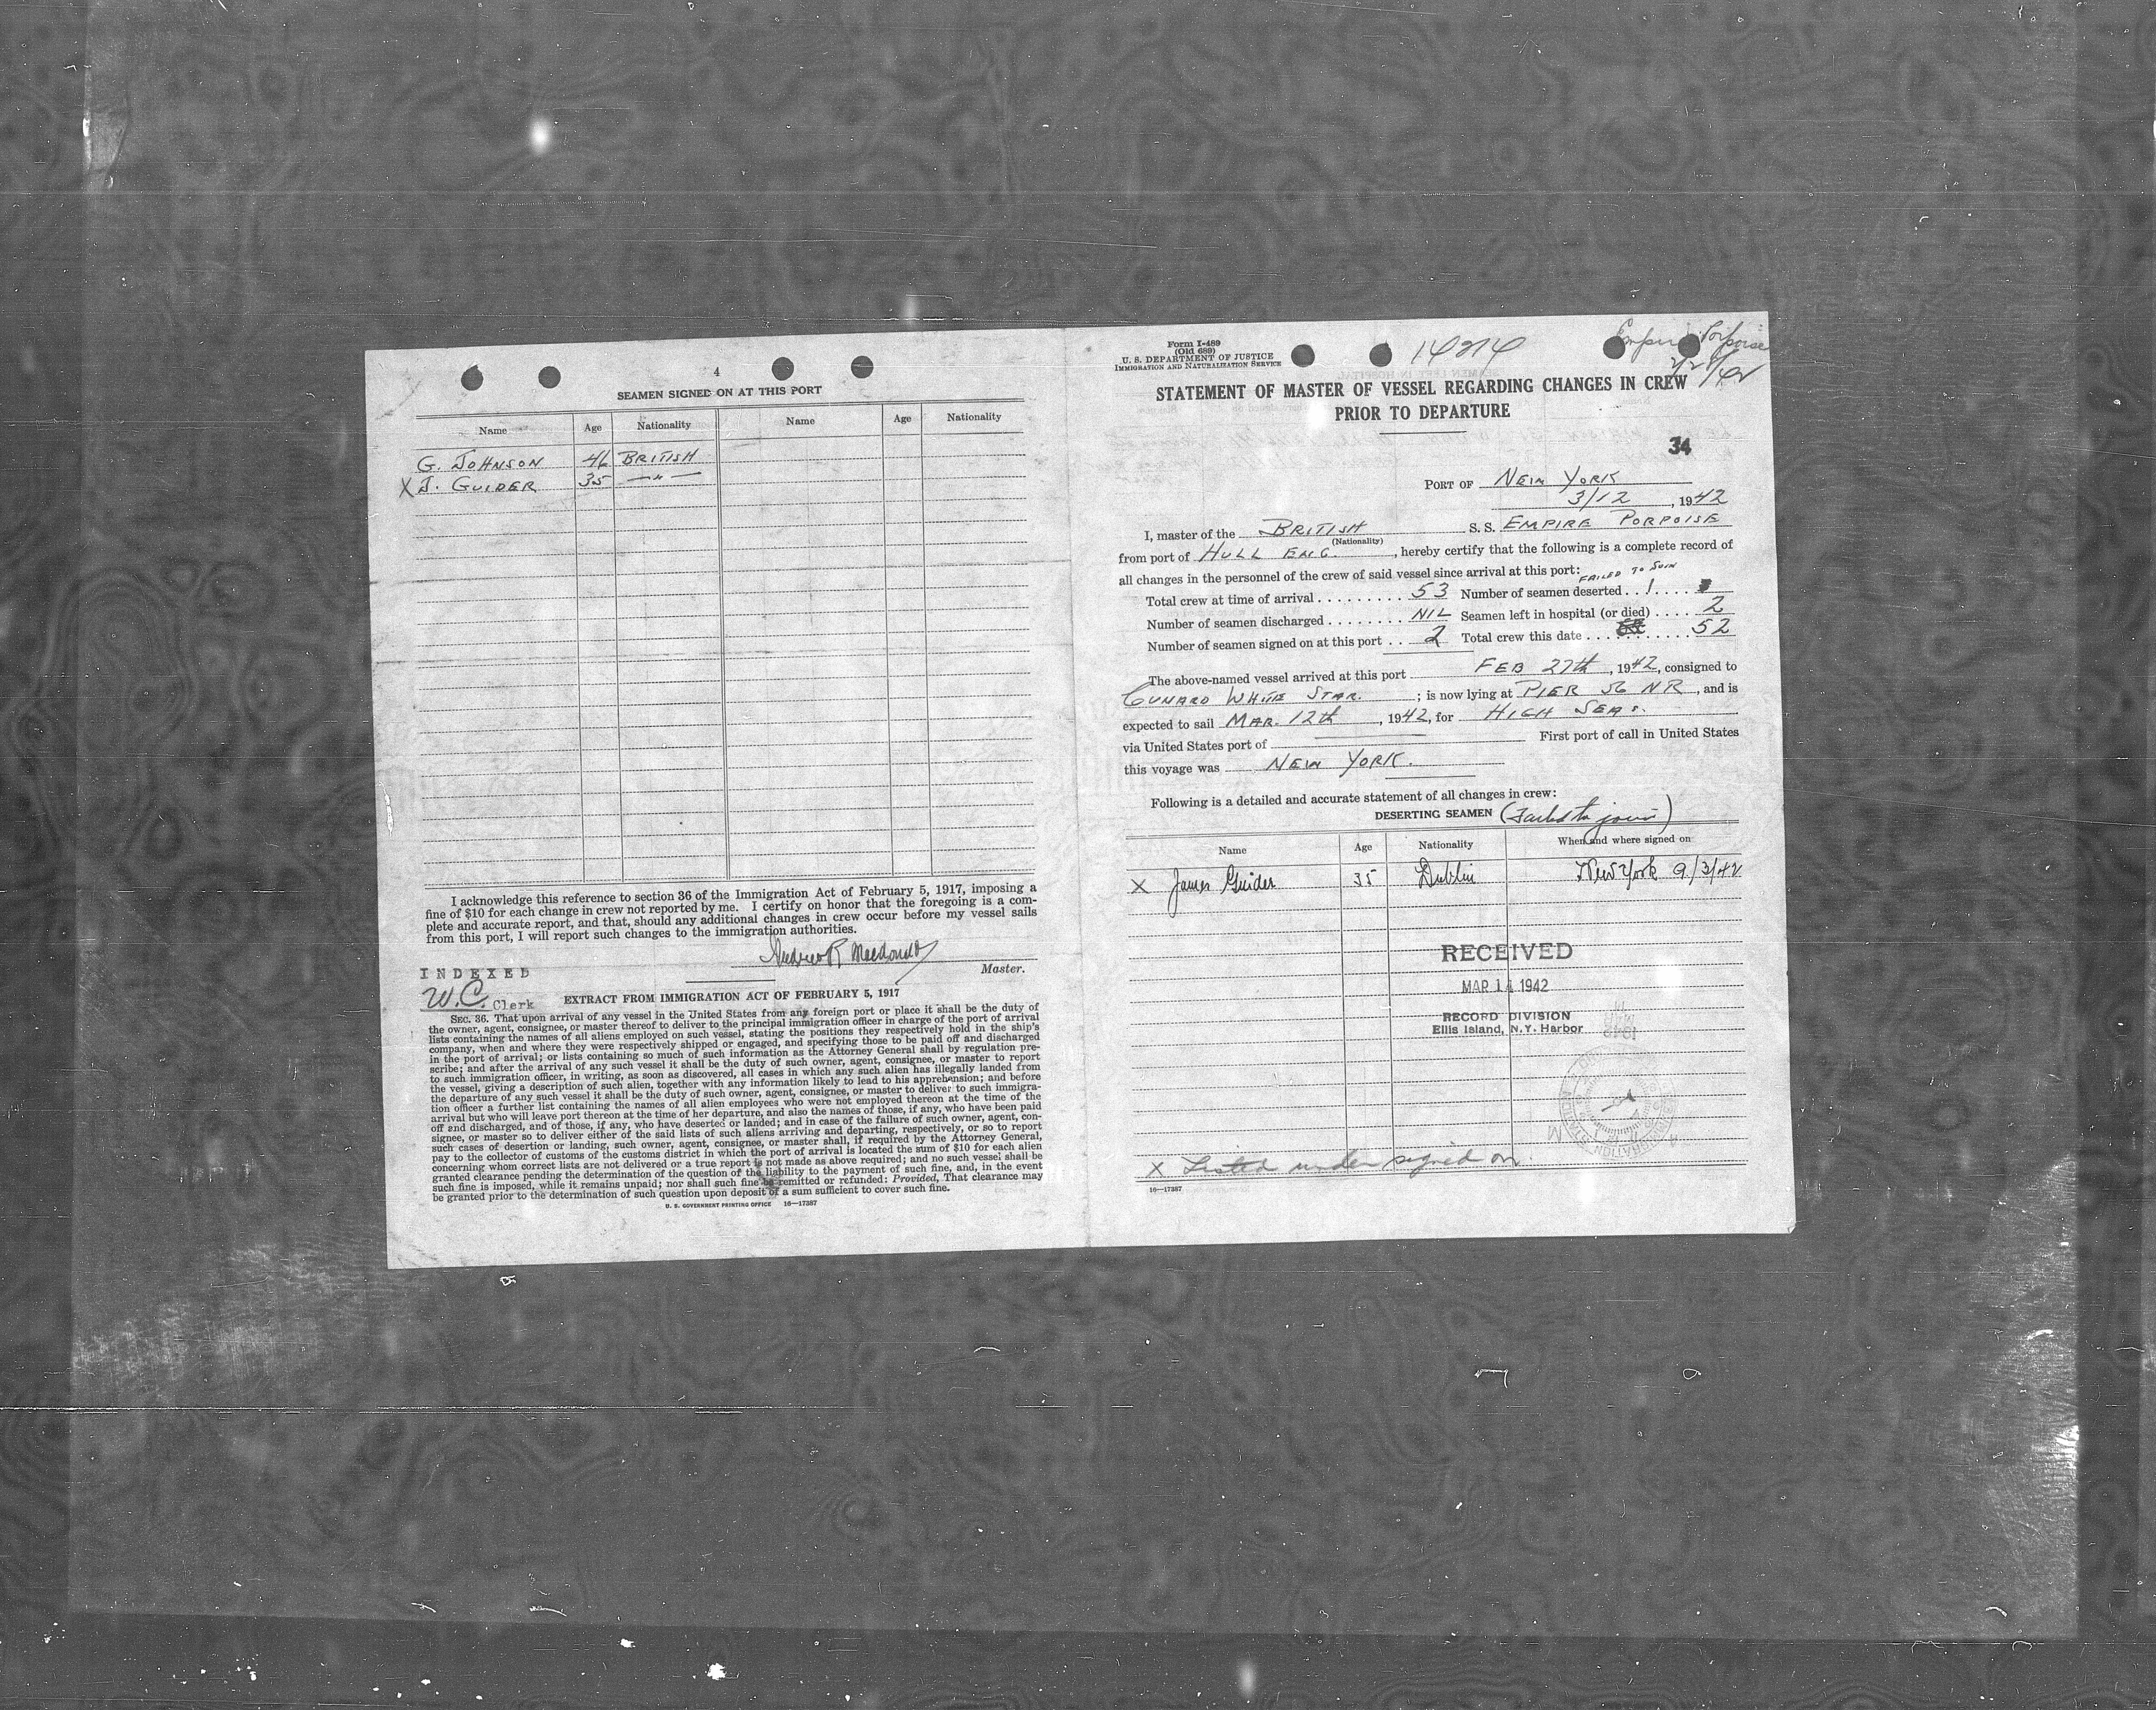 4
SEAMEN SIGNED ON AT THIS PORT
Name Age Nationality Name Age Nationality
G. JOHNSON 46 BRITISH
X J. GUIDER 35 —"—
I acknowledge this reference to section 36 of the Immigration Act of February 5, 1917, imposing a
fine of $10 for each change in crew not reported by me. I certify on honor that the foregoing is a com-
plete and accurate report, and that, should any additional changes in crew occur before my vessel sails
from this port, I will report such changes to the immigration authorities.
Andrew R Macdonald
Master.
INDEXED
W.C. Clerk
EXTRACT FROM IMMIGRATION ACT OF FEBRUARY 5, 1917
SEC. 36. That upon arrival of any vessel in the United States from any foreign port or place it shall be the duty of
the owner, agent, consignee, or master thereof to deliver to the principal immigration officer in charge of the port of arrival
lists containing the names of all aliens employed on such vessel, stating the positions they respectively hold in the ship's
company, when and where they were respectively shipped or engaged, and specifying those to be paid off and discharged
in the port of arrival; or lists containing so much of such information as the Attorney General shall by regulation pre-
scribe; and after the arrival of any such vessel it shall be the duty of such owner, agent, consignee, or master to report
to such immigration officer, in writing, as soon as discovered, all cases in which any such alien has illegally landed from
the vessel, giving a description of such alien, together with any information likely to lead to his apprehension; and before
the departure of any such vessel it shall be the duty of such owner, agent, consignee, or master to deliver to such immigra-
tion officer a further list containing the names of all alien employees who were not employed thereon at the time of the
arrival but who will leave port thereon at the time of her departure, and also the names of those, if any, who have been paid
off and discharged, and of those, if any, who have deserted or landed; and in case of the failure of such owner, agent, con-
signee, or master so to deliver either of the said lists of such aliens arriving and departing, respectively, or so to report
such cases of desertion or landing, such owner, agent, consignee, or master shall, if required by the Attorney General,
pay to the collector of customs of the customs district in which the port of arrival is located the sum of $10 for each alien
concerning whom correct lists are not delivered or a true report is not made as above required; and no such vessel shall be
granted clearance pending the determination of the question of the liability to the payment of such fine, and, in the event
such fine is imposed, while it remains unpaid; nor shall such fine be remitted or refunded: Provided, That clearance may
be granted prior to the determination of such question upon deposit of a sum sufficient to cover such fine.
U. S. GOVERNMENT PRINTING OFFICE 16—17387
Form I-489
(Old 689)
U. S. DEPARTMENT OF JUSTICE
IMMIGRATION AND NATURALIZATION SERVICE
14214
Empire Porpoise
2/27/42
STATEMENT OF MASTER OF VESSEL REGARDING CHANGES IN CREW
PRIOR TO DEPARTURE
34
PORT OF NEW YORK
3/12, 1942
I, master of the BRITISH S. S. EMPIRE PORPOISE
(Nationality)
from port of HULL ENG., hereby certify that the following is a complete record of
all changes in the personnel of the crew of said vessel since arrival at this port:
FAILED TO JOIN
Total crew at time of arrival . . . . . . . . . 53 Number of seamen deserted . . 1 . . . .
Number of seamen discharged . . . . . . . . NIL Seamen left in hospital (or died) . . . . 2
Number of seamen signed on at this port . . 2 Total crew this date . . . . . . . . . . 52
The above-named vessel arrived at this port FEB 27th, 1942, consigned to
CUNARD WHITE STAR. ; is now lying at PIER 56 NR, and is
expected to sail MAR. 12th, 1942, for HIGH SEAS.
via United States port of First port of call in United States
this voyage was NEW YORK.
Following is a detailed and accurate statement of all changes in crew:
DESERTING SEAMEN (Failed to join)
Name Age Nationality When and where signed on
X James Guider 35 Dublin New York 9/3/42
RECEIVED
MAR 14 1942
RECORD DIVISION
Ellis Island, N.Y. Harbor
X Listed under signed on.
16—17387